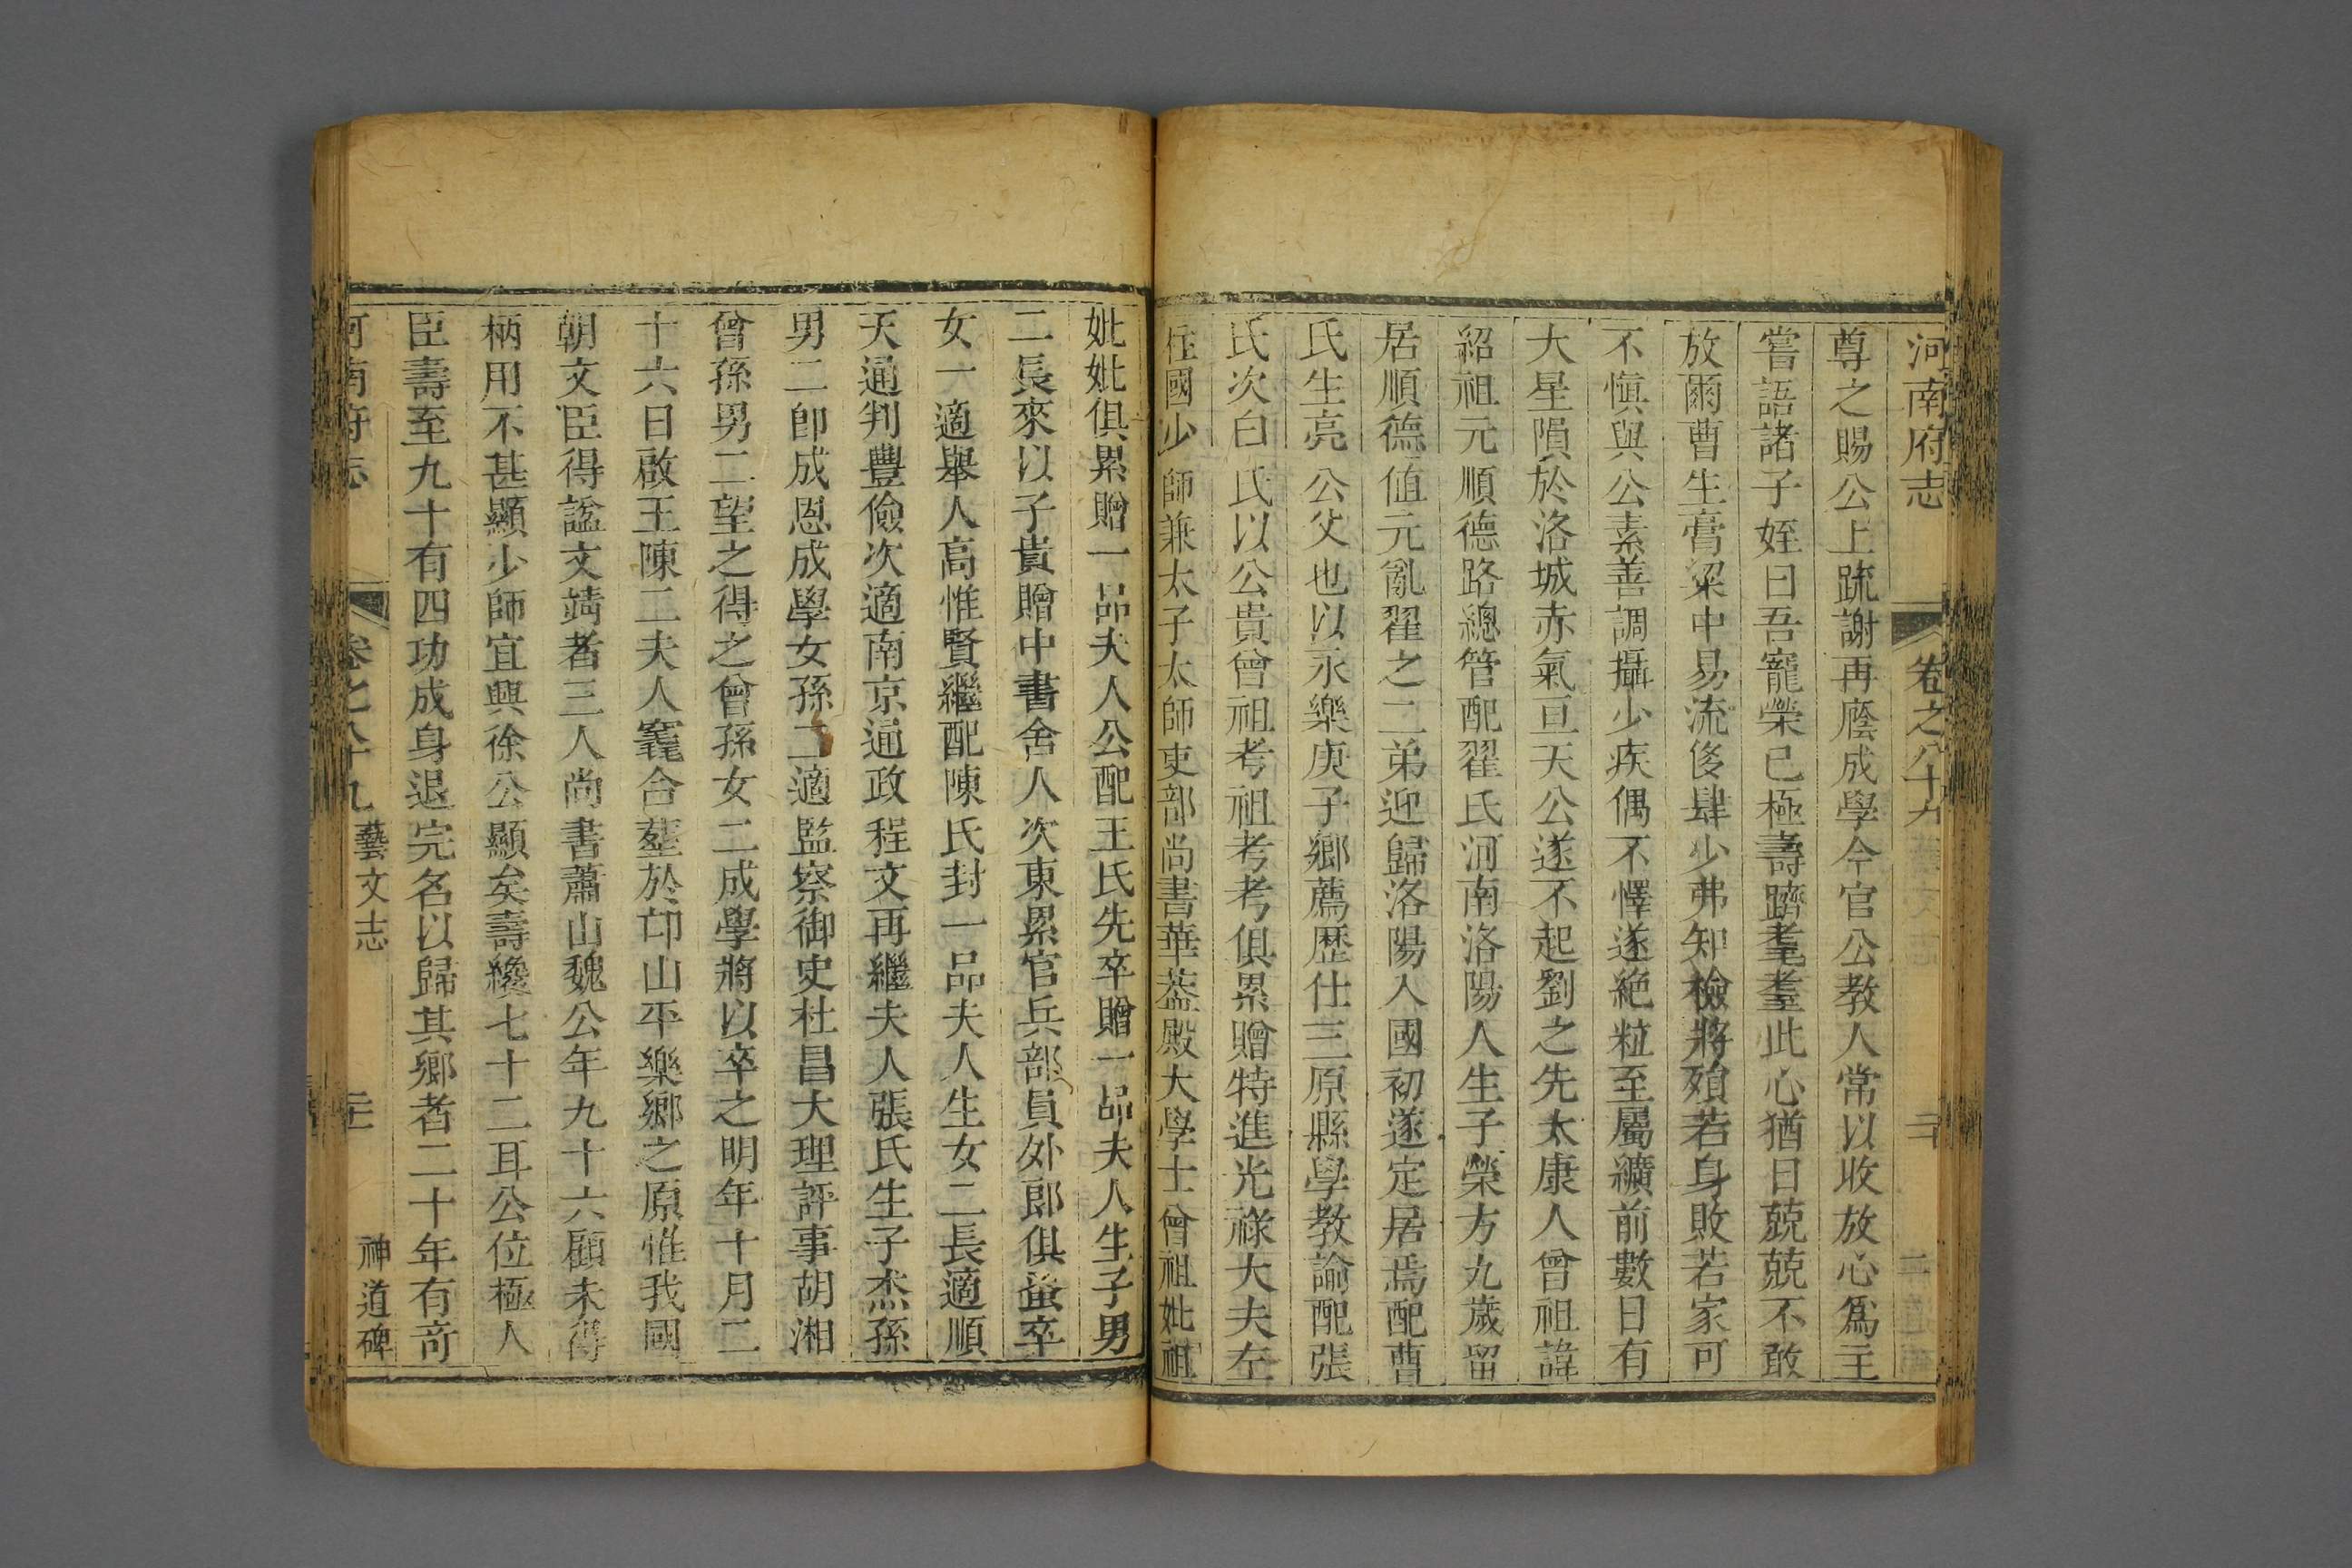 河南府志 卷之八十九 二十
尊之賜公上疏謝再廕成學今官公教人常以收放心爲主
嘗語諸子姪曰吾寵榮已極壽躋耄耋此心猶日兢兢不敢
放爾曹生膏粱中易流侈肆少弗知檢將殞若身敗若家可
不愼與公素善調攝少疾偶不懌遂絶粒至屬纊前數日有
大星隕於洛城赤氣亘天公遂不起劉之先太康人曾祖諱
紹祖元順德路總管配翟氏河南洛陽人生子榮方九歲留
居順德值元亂翟之二弟迎歸洛陽入國初遂定居焉配曹
氏生亮公父也以永樂庚子鄉薦歴仕三原縣學教諭配張
氏次白氏以公貴曾祖考祖考考俱累贈特進光祿大夫左
柱國少師兼太子太師吏部尚書華葢殿大學士曾祖妣祖
妣妣俱累贈一品夫人公配王氏先卒贈一品夫人生子男
二長來以子貴贈中書舍人次東累官兵部員外郎俱蚤卒
女一適舉人高惟賢繼配陳氏封一品夫人生女二長適順
天通判豐儉次適南京通政程文再繼夫人張氏生子杰孫
男二卽成恩成學女孫二適監察御史杜昌大理評事胡湘
曾孫男二望之得之曾孫女二成學將以卒之明年十月二
十六日啟王陳二夫人竁合塟於邙山平樂鄉之原惟我國
朝文臣得諡文靖者三人尚書蕭山魏公年九十六顧未得
柄用不甚顯少師宜興徐公顯矣壽纔七十二耳公位極人
臣壽至九十有四功成身退完名以歸其鄉者二十年有奇
河南府志 卷之八十九 藝文志 二十一 神道碑